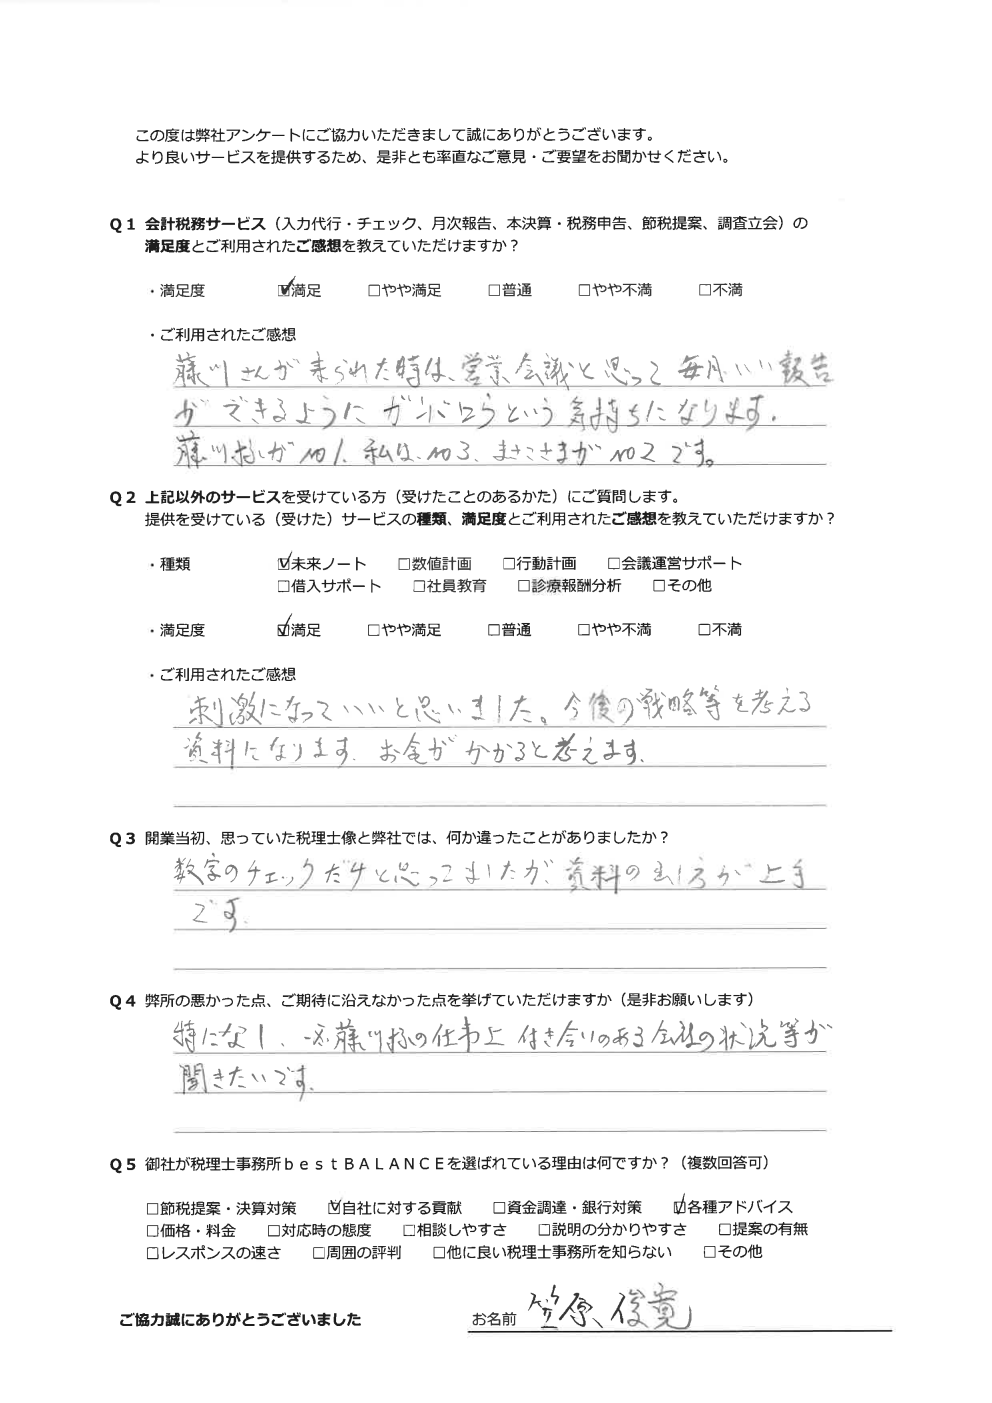 この度は弊社アンケートにご協力いただきまして誠にありがとうございます。
より良いサービスを提供するため、是非とも率直なご意見・ご要望をお聞かせください。
Q1 会計税務サービス（入力代行・チェック、月次報告、本決算・税務申告、節税提案、調査立会）の
満足度とご利用されたご感想を教えていただけますか？
・満足度 ☑満足 □やや満足 □普通 □やや不満 □不満
・ご利用されたご感想
藤川さんが来られた時は、営業会議と思って毎月いい報告
ができるようにガンバロうという気持ちになります。
藤川様がNO1、私は、NO3、まさこさまがNO2です。
Q2 上記以外のサービスを受けている方（受けたことのあるかた）にご質問します。
提供を受けている（受けた）サービスの種類、満足度とご利用されたご感想を教えていただけますか？
・種類 ☑未来ノート □数値計画 □行動計画 □会議運営サポート
□借入サポート □社員教育 □診療報酬分析 □その他
・満足度 ☑満足 □やや満足 □普通 □やや不満 □不満
・ご利用されたご感想
刺激になっていいと思いました。今後の戦略等を考える
資料になります。お金がかかると考えます。
Q3 開業当初、思っていた税理士像と弊社では、何か違ったことがありましたか？
数字のチェックだけと思ってましたが、資料の出し方が上手
です。
Q4 弊所の悪かった点、ご期待に沿えなかった点を挙げていただけますか（是非お願いします）
特になし、藤川様の仕事上付き合いのある会社の状況等が
聞きたいです。
Q5 御社が税理士事務所ｂｅｓｔＢＡＬＡＮＣＥを選ばれている理由は何ですか？（複数回答可）
□節税提案・決算対策 ☑自社に対する貢献 □資金調達・銀行対策 ☑各種アドバイス
□価格・料金 □対応時の態度 □相談しやすさ □説明の分かりやすさ □提案の有無
□レスポンスの速さ □周囲の評判 □他に良い税理士事務所を知らない □その他
ご協力誠にありがとうございました お名前 笠原、俊寛